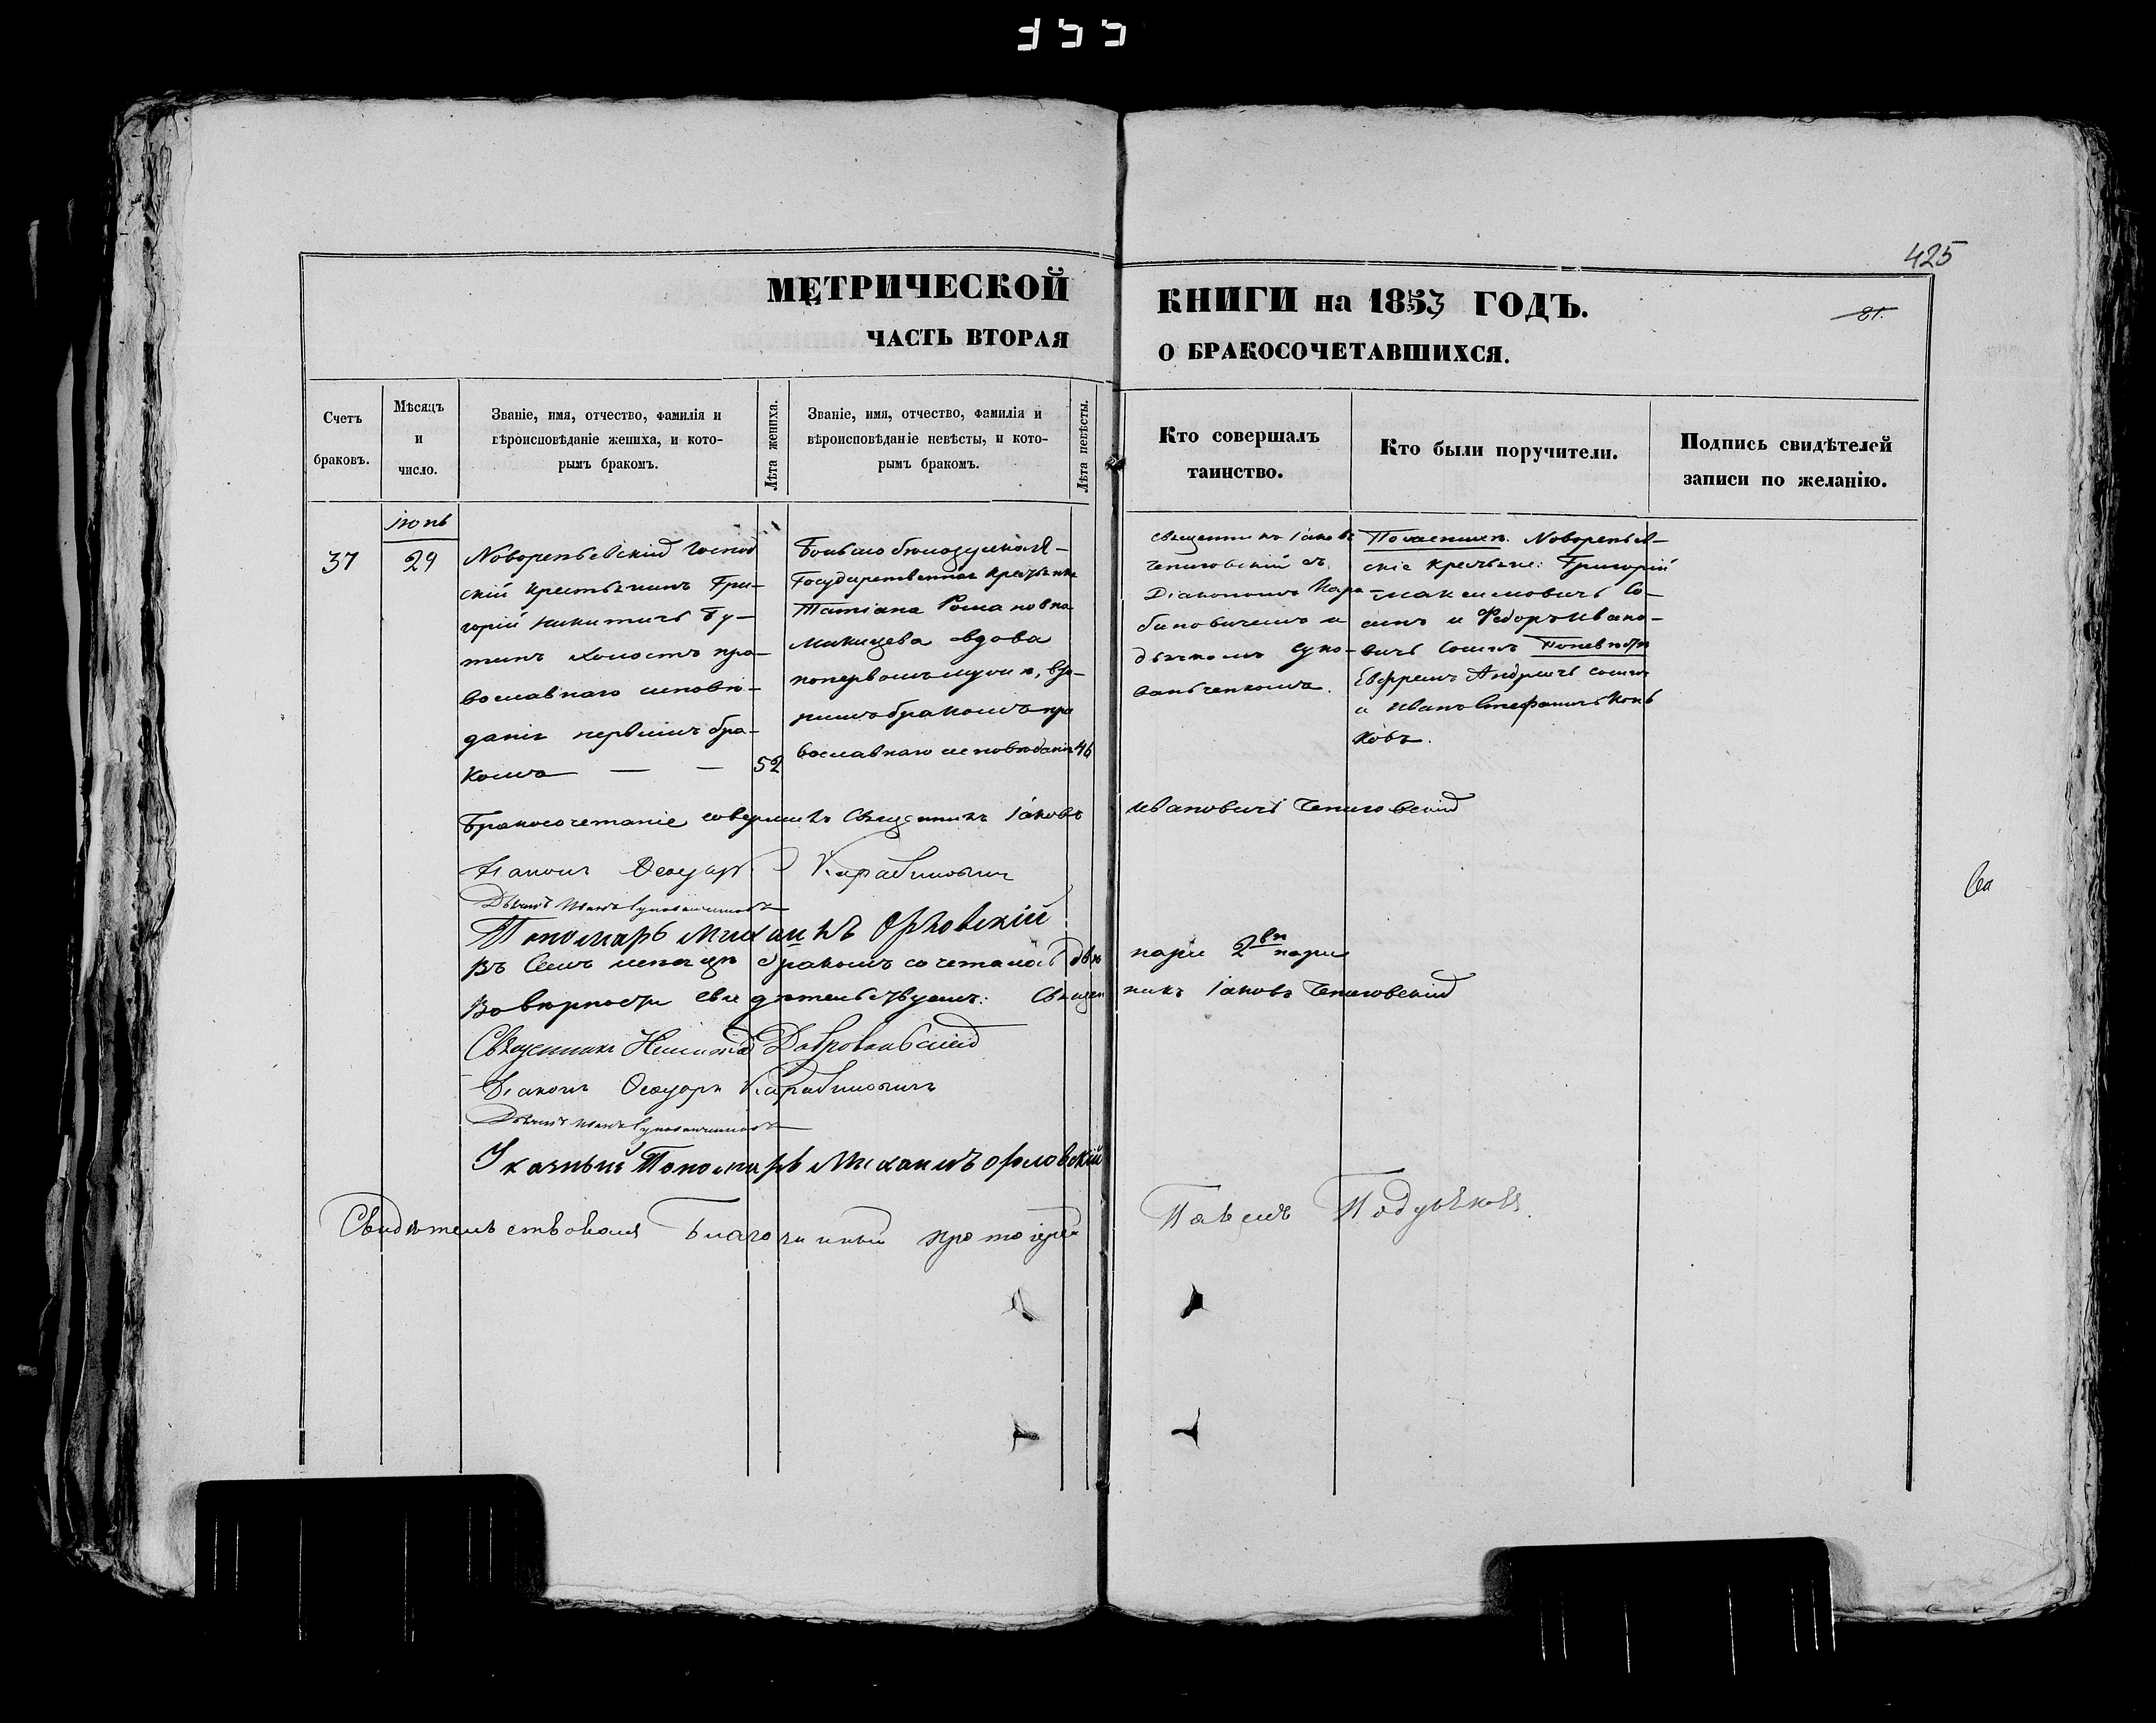 425
МЕТРИЧЕСКОЙ КНИГИ на 1853 ГОДЪ.
81.
ЧАСТЬ ВТОРАЯ О БРАКОСОЧЕТАВШИХСЯ.
Счетъ браковъ.
Мѣсяцъ и число.
Званіе, имя, отчество, фамилія и
вѣроисповѣданіе жениха, и кото-
рымъ бракомъ.
Лѣта жениха.
Званіе, имя, отчество, фамилія и
вѣроисповѣданіе невѣсты, и кото-
рымъ бракомъ.
Лѣта невѣсты.
Кто совершалъ
таинство.
Кто были поручители.
Подпись свидѣтелей
записи по желанію.
37
іюнь
29
Новорепьевскій Господ
скій крестьянинъ Гри-
горій Никитичъ Бу-
тинъ холостъ пра-
вославнаго исповѣ-
данія первымъ бра-
комъ — —
52
Государственная крестьянка
Татіана Романовна
вдова
по первомъ мужѣ, вто-
рымъ бракомъ пра
вославнаго исповѣданія
46
Священникъ Іаковъ
съ
Діакономъ Кара
биновичемъ и
дьячкомъ Суко-
ваньченкомъ.
По женихѣ: Новорепьев-
скіе крестьяне: Григорій
Максимовичъ Со-
инъ и Федоръ Ивано-
вичъ Соинъ По невѣстѣ
Ефремъ Андреичъ
и Иванъ Стефаничъ Конь
ковъ.
Бракосочетаніе совершилъ Священникъ Іаковъ Ивановичъ
Діаконъ Ѳеодоръ Карабиновичъ
Дьячекъ
Пономарь Михаилъ Орловскій
Въ семъ мѣсяцѣ бракомъ сочеталось двѣ пары 2 вѣ пары
Въ вѣрности свидѣтельствуемъ: Священникъ Іаковъ
Священникъ
Діаконъ Ѳеодоръ Карабиновичъ
Дьячекъ
Указный Пономарь Михаилъ Орловскій
Свидѣтельствовалъ Благочинный протоіерей Павелъ